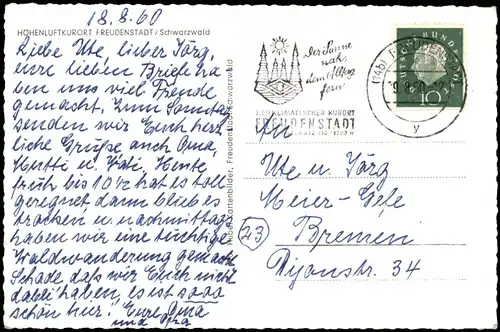 18.8.60
HÖHENLUFTKURORT FREUDENSTADT / Schwarzwald
Liebe Ute, lieber Jörg,
eure lieben Briefe ha
ben uns viel Freude
gemacht. Zum Sonntag
senden wir Euch herz
liche Grüße auch Oma,
Mutti u. Vati. Heute
früh bis 10½ hat es toll
geregnet dann blieb es
trocken u. nachmittags
haben wir eine tüchtige
Waldwanderung gemacht
Schade daß wir Euch nicht
dabei haben, es ist sooo
schön hier! Eure Oma
und Opa
Der Sonne
nah,
dem Alltag
fern!
HEILKLIMATISCHER KURORT
FREUDENSTADT
DEUTSCHE BUNDESPOST
10
An
Ute u. Jörg
Meier-Gele
23
Bremen
Dijonstr. 34